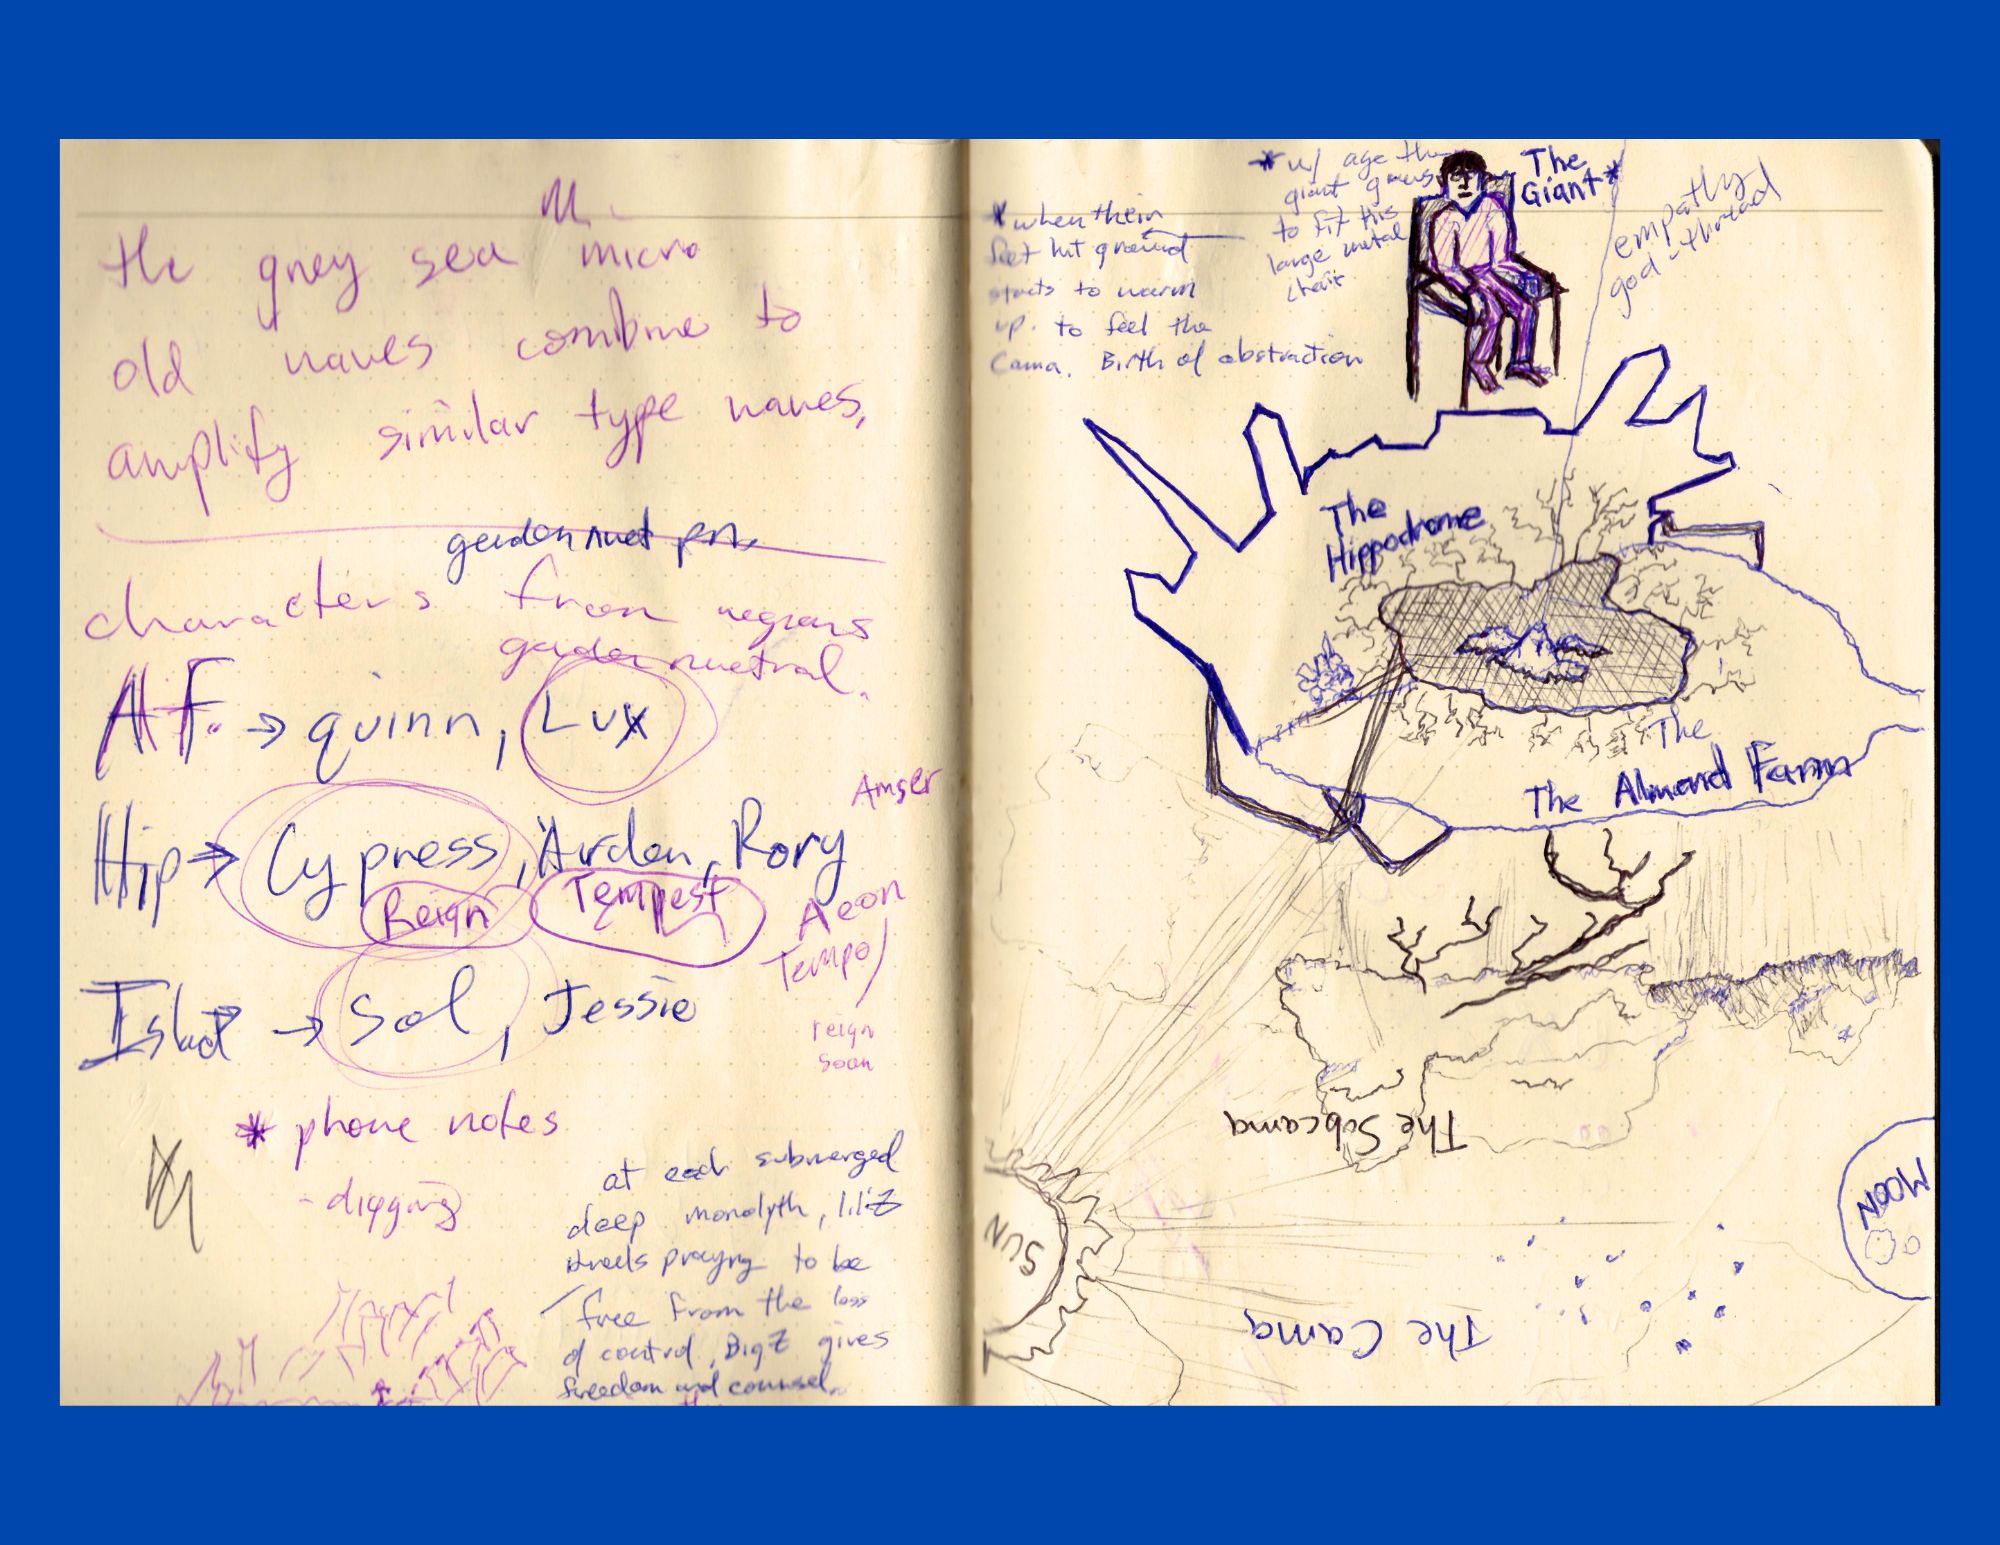 the grey sea micro
old waves combine to
amplify similar type waves,
characters from regions
gender nuetral.
A.F. → quinn, Lux
Amser
Hip → Cypress, Arden, Rory
Reign Tempest
Aeon
Tempo/
→ Sol, Jessie
reign
soon
* phone notes
- digging
at each submerged
deep monolyth, lil'Z
kneels praying to be
free from the loss
of control, BigZ gives
freedom and counsel.
* w/ age the
giant grows
to fit his
large metal
chair
The
Giant*
empathy
god-thread
* when their
feet hit ground
starts to warm
up. to feel the
Cama. Birth of abstraction
The
Hippodrome
The
The Almond Farm
The Subcama
MOON
SUN
The Cama